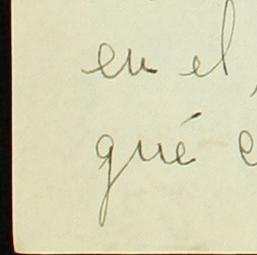 en el
qué